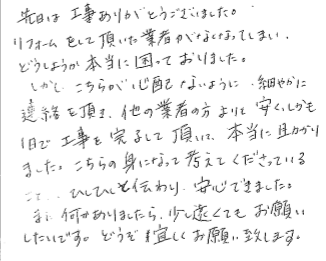 先日は工事ありがとうございました。
リフォームをして頂いた業者がなくなってしまい、
どうしようか本当に困っておりました。
しかし、こちらが心配ないように、細やかに
連絡を頂き、他の業者の方よりも安くしかも
1日で工事を完了して頂いて、本当に助かり
ました。こちらの身になって考えてくださっている
こと、ひしひしと伝わり、安心できました。
また何かありましたら、少し遠くてもお願い
したいです。どうぞ宜しくお願い致します。